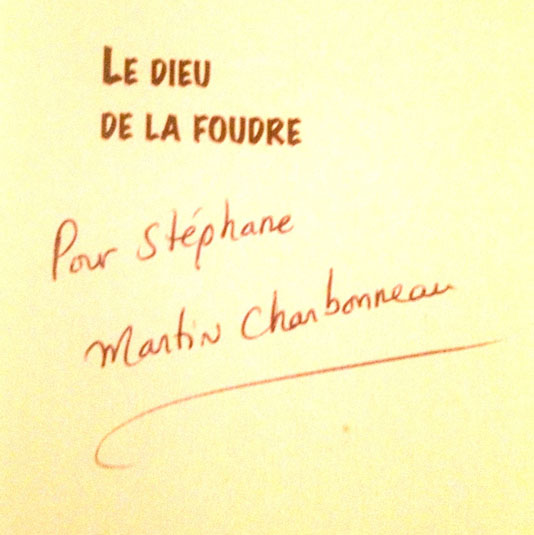 LE DIEU
DE LA FOUDRE
Pour Stéphane
Martin Charbonneau